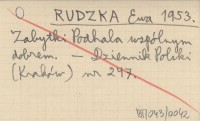 O RUDZKA Ewa 1953.
Zabytki Podhala wspólnym
dobrem. – Dziennik Polski
(Kraków) nr 297.